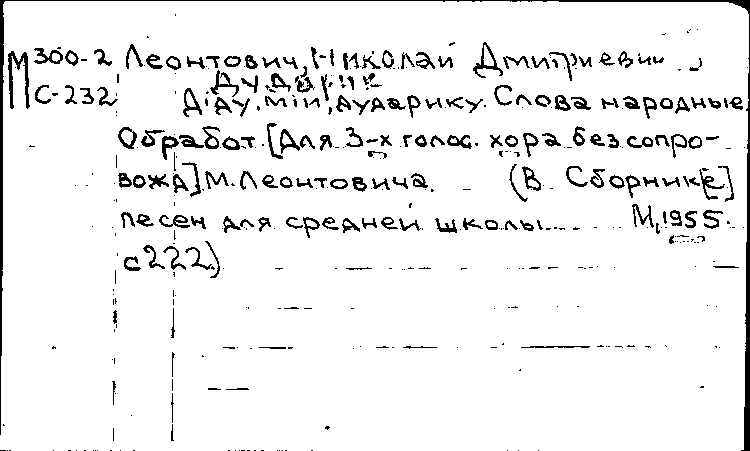 М 300-2 Леонтович, Николай Дмитриевич
Дударик
С-232 Діду мій, дударику. Слова народные.
Обработ. [для 3-х голос. хора без сопро-
вожд] М. Леонтовича. (В Сборник[е]
песен для средней школы.... М, 1955.
с 222)